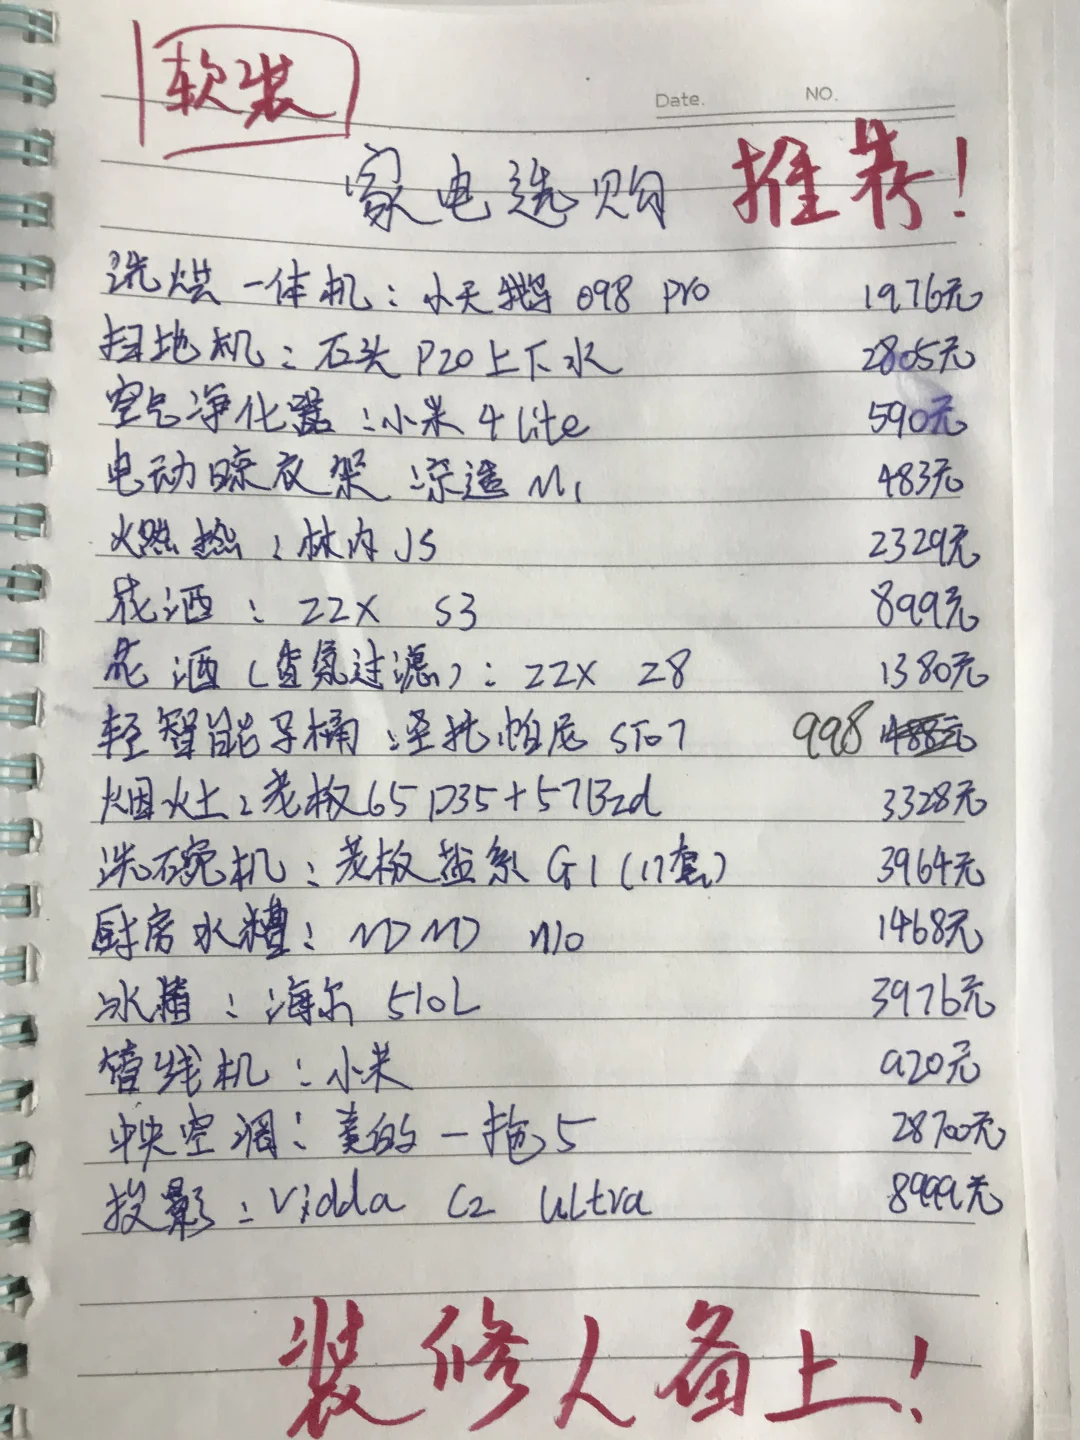 软装
Date.
NO.
家电选购 推荐!
洗烘一体机:小天鹅098 pro 1976元
扫地机:石头P20上下水 2805元
空气净化器:小米4 Lite 590元
电动晾衣架:深造M1 483元
火燃热:林内JS 2329元
花洒:22X S3 899元
花洒(过滤):22X 28 1380元
轻智能马桶:圣托帕尼ST07 998
烟火土:老板65D35+57B2d 3328元
洗碗机:老板盐系G1(17套) 3964元
厨房水槽:MDMD n10 1468元
冰箱:海尔510L 3976元
管线机:小米 920元
中央空调:美的一拖5 28700元
投影:Vidda C2 Ultra 8999元
装修人备上!